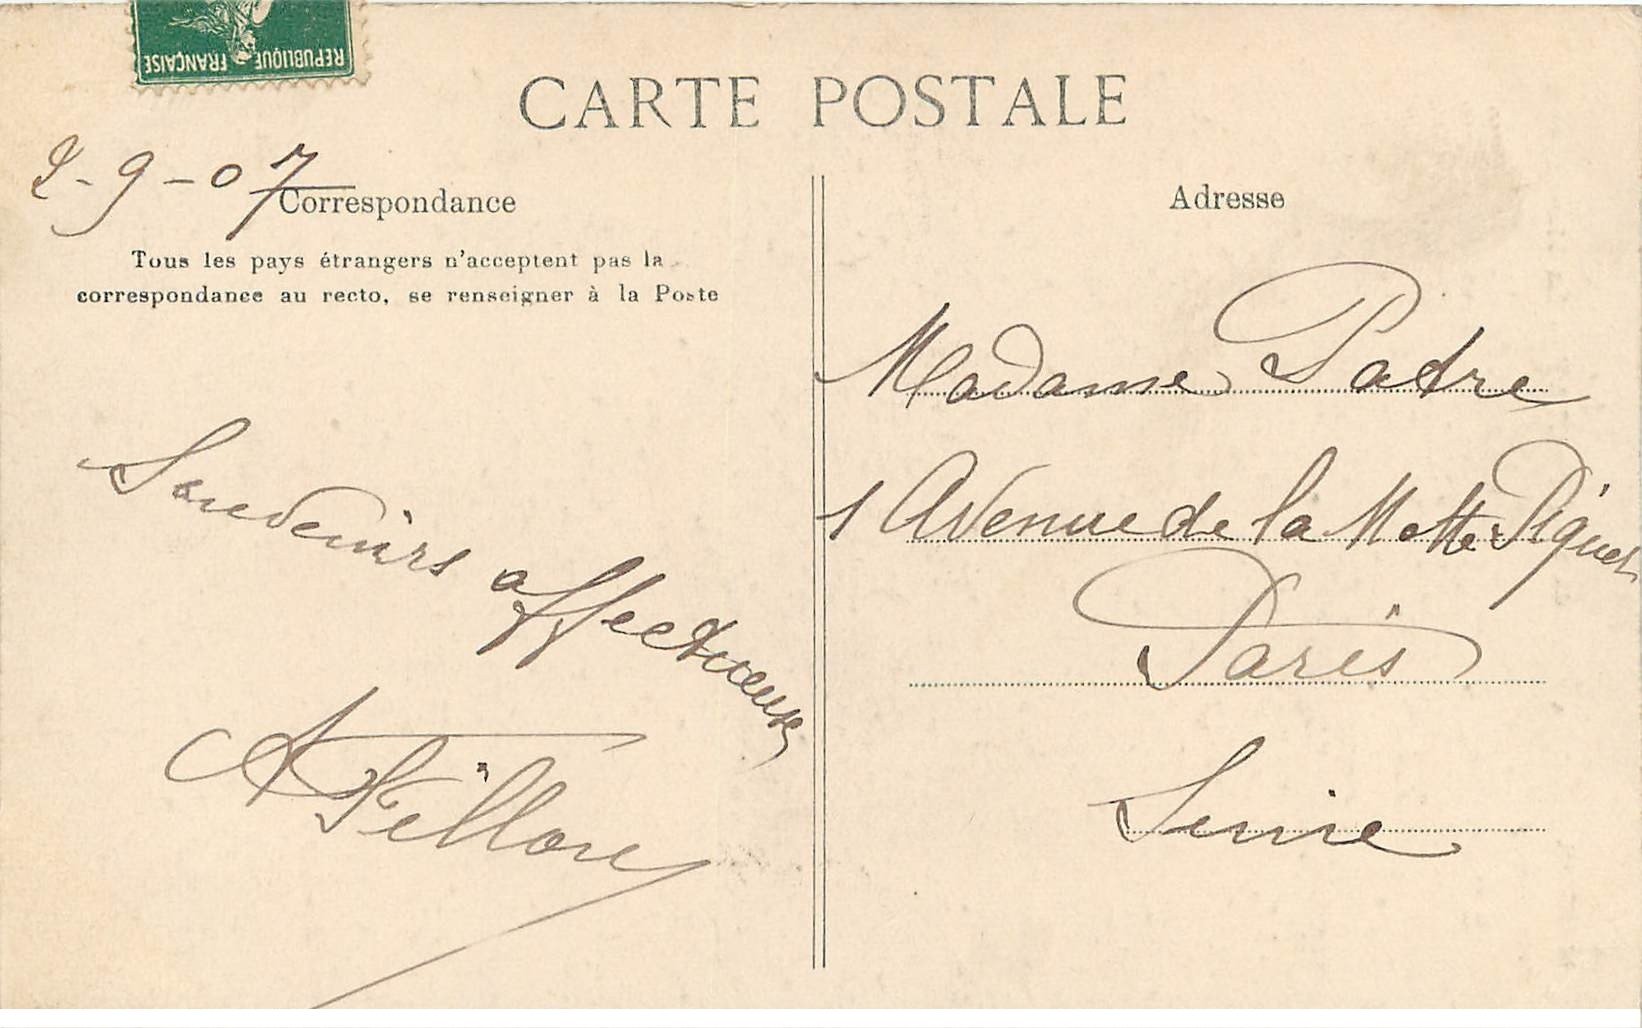 REPUBLIQUE FRANÇAISE
CARTE POSTALE
2-9-07
Correspondance
Tous les pays étrangers n'acceptent pas la
correspondance au recto, se renseigner à la Poste
Souvenirs affectueux
A Fillon
Adresse
Madame Padre
1 Avenue de la Motte Piquet
Paris
Seine